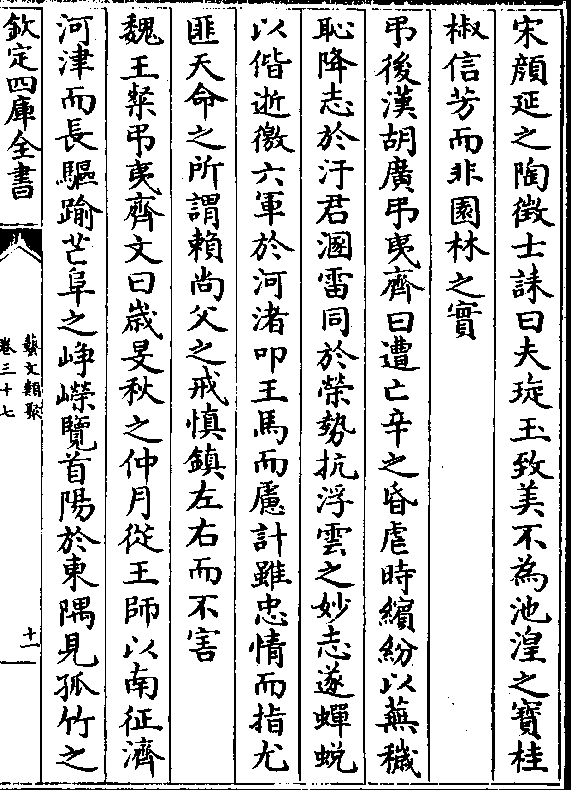 宋顔延之陶徵士誄曰夫琁玉致美不為池湟之寶桂
椒信芳而非園林之實
弔後漢胡廣弔夷齊曰遭亡辛之昏虐時繽紛以蕪穢
恥降志於汙君溷雷同於榮勢抗浮雲之妙志遂蟬蛻
以偕逝徼六軍於河渚叩王馬而慮計雖忠情而指尤
匪天命之所謂賴尚父之戒慎鎮左右而不害
魏王粲弔夷齊文曰歳旻秋之仲月從王師以南征濟
河津而長驅踰芒阜之崢嶸覽首陽於東隅見孤竹之
欽定四庫全書
藝文類聚
卷三十七
十一